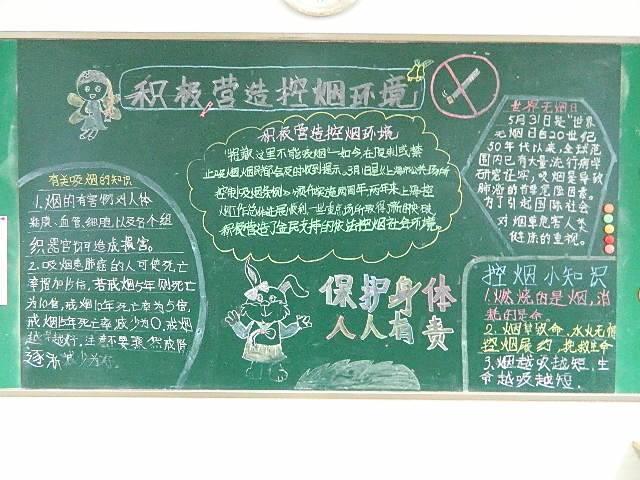 积极营造控烟环境
积极营造控烟环境
"抱歉,这里不能吸烟"
控制吸烟条例
积极营造了全民支持的依法控烟社会环境。
世界无烟日
5月31日是"世界
无烟日自20世纪
50年代以来,全球范
围内已有大量流行病学
研究证实,吸烟是导致
肺癌的首要危险因素。
为了引起国际社会
对烟草危害人类
健康的重视。
有关吸烟的知识
1.烟的有害物对人体
黏膜、血管、细胞,以及各个组
织器官均可造成损害。
2.吸烟患肺症的人可使死亡
率增加
若戒烟5年则死亡
为10倍,戒烟10年死亡率为5倍,
戒烟15年死亡率减少为0,戒烟
越早越好,注意不要突然戒除
逐渐减少为好
保护身体
人人有责
控烟小知识
1.燃烧的是烟,消
耗的是命。
2.烟草致命,水火无情
控烟履约,挽救生命
3.烟越吸越短,生
命越吸越短.